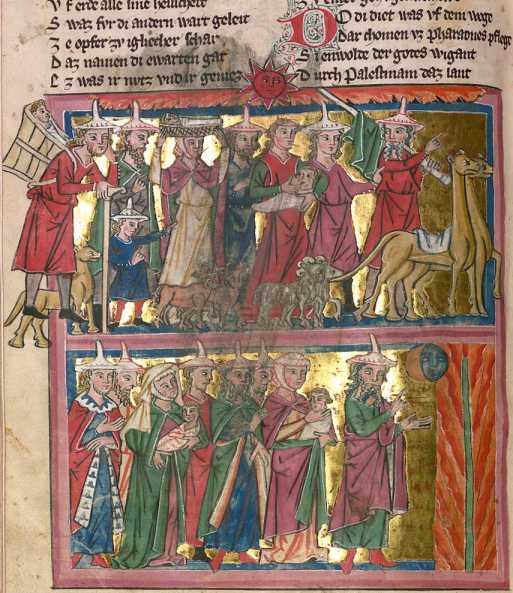 V f erde alle sine heilicheit
S waz fvr di andern wart geleit
Z e opfer zv ighecher schar
D az namen di ewarten gar
E z was ir nvtz vnd ir geniez
D O di diet was vf dem wege
Dar chomen vz pharaones pflege
S i enwolde der gotes wigant
D urch Palestinam daz lant